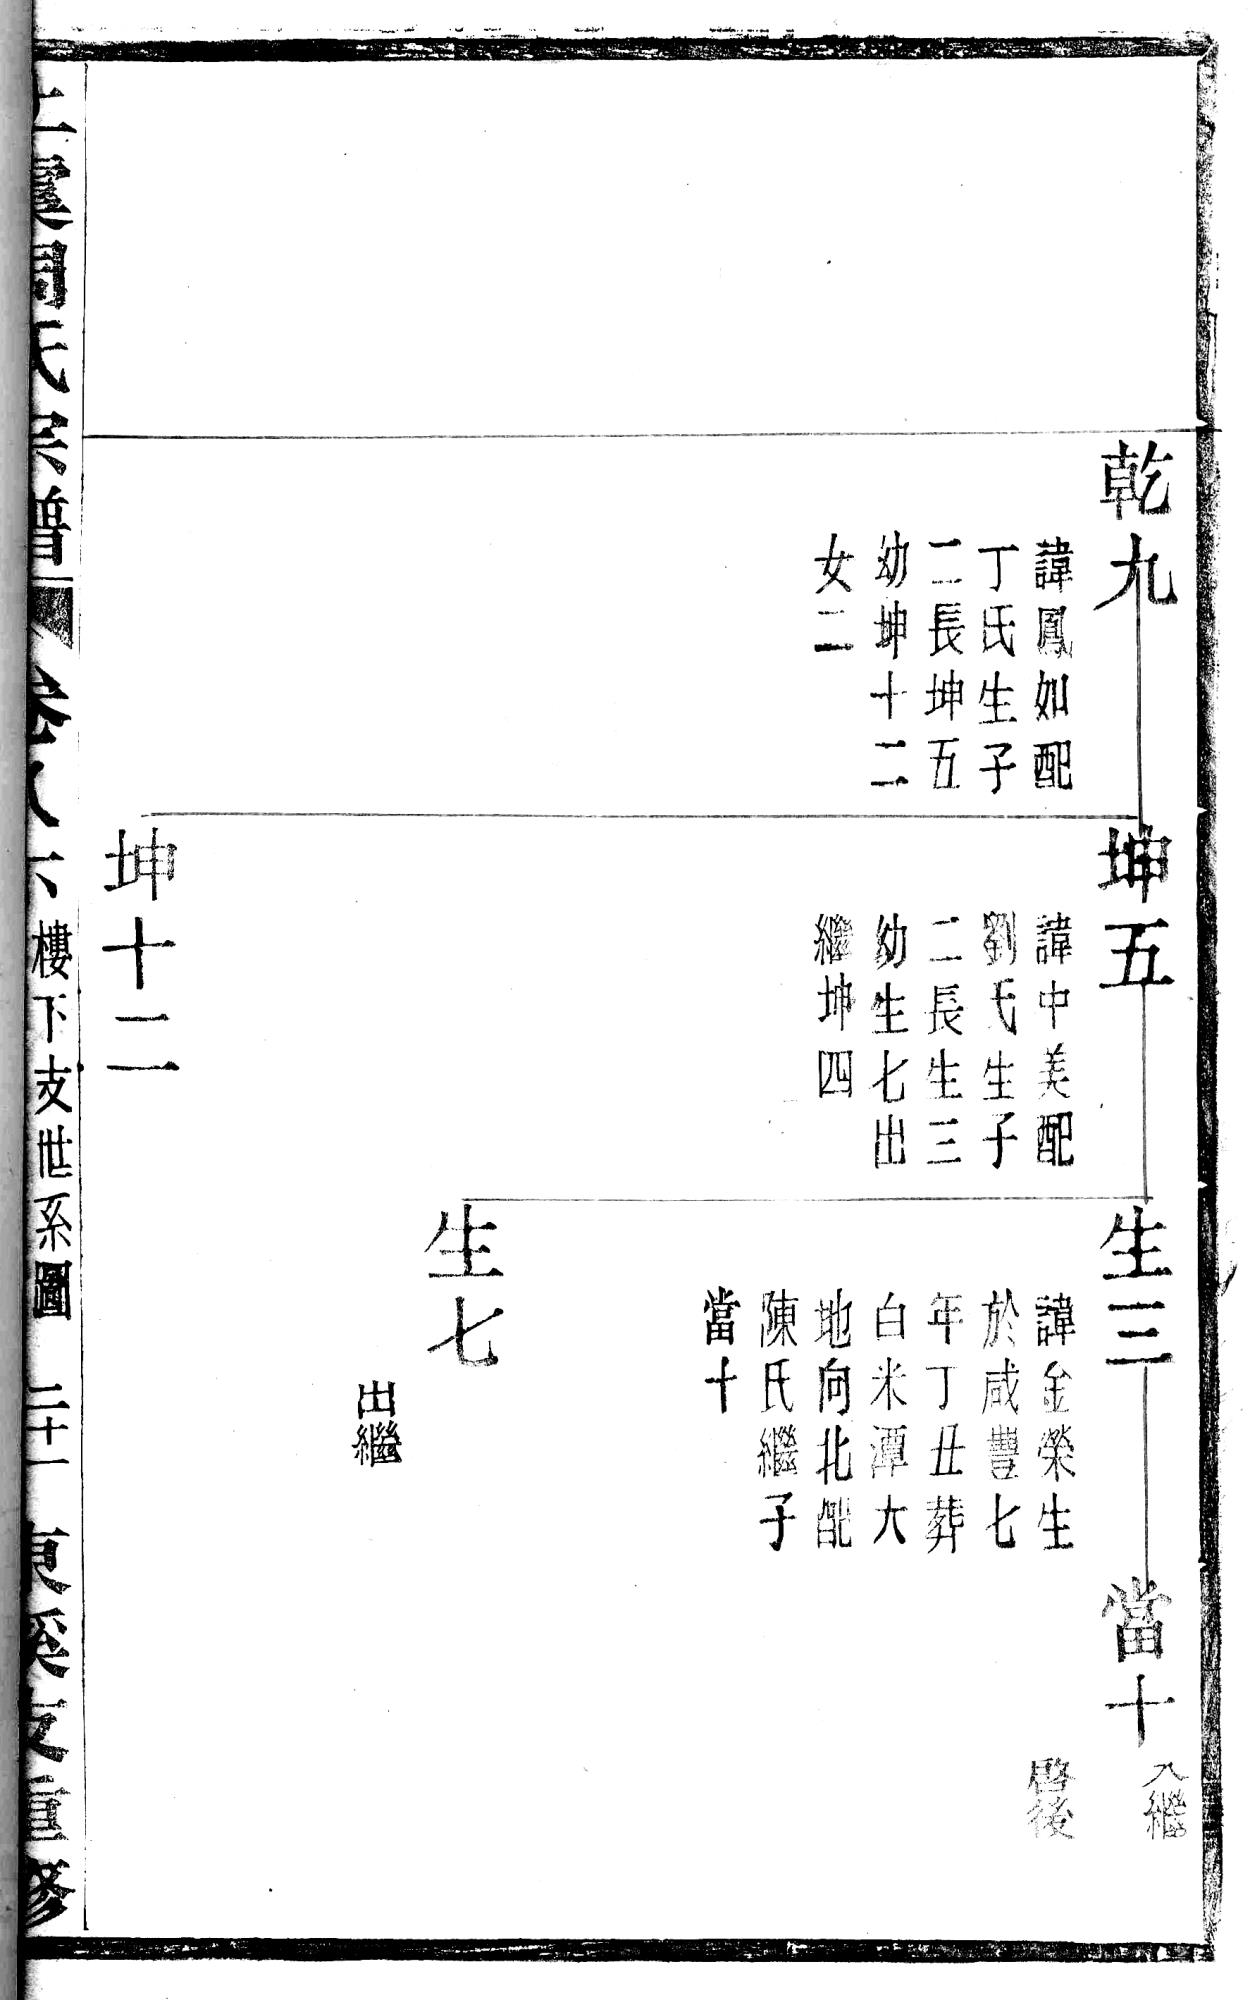 乾九
諱鳳如配
丁氏生子
二長坤五
幼坤十二
女二
坤五
諱中美配
劉氏生子
二長生三
幼生七出
繼坤四
坤十二
生三
諱金榮生
於咸豐七
年丁丑葬
白米潭大
地向北配
陳氏繼子
當十
生七
出繼
當十
入繼
啓後
周氏宗譜
卷八六
樓下支世系圖
二十一
東溪支重修